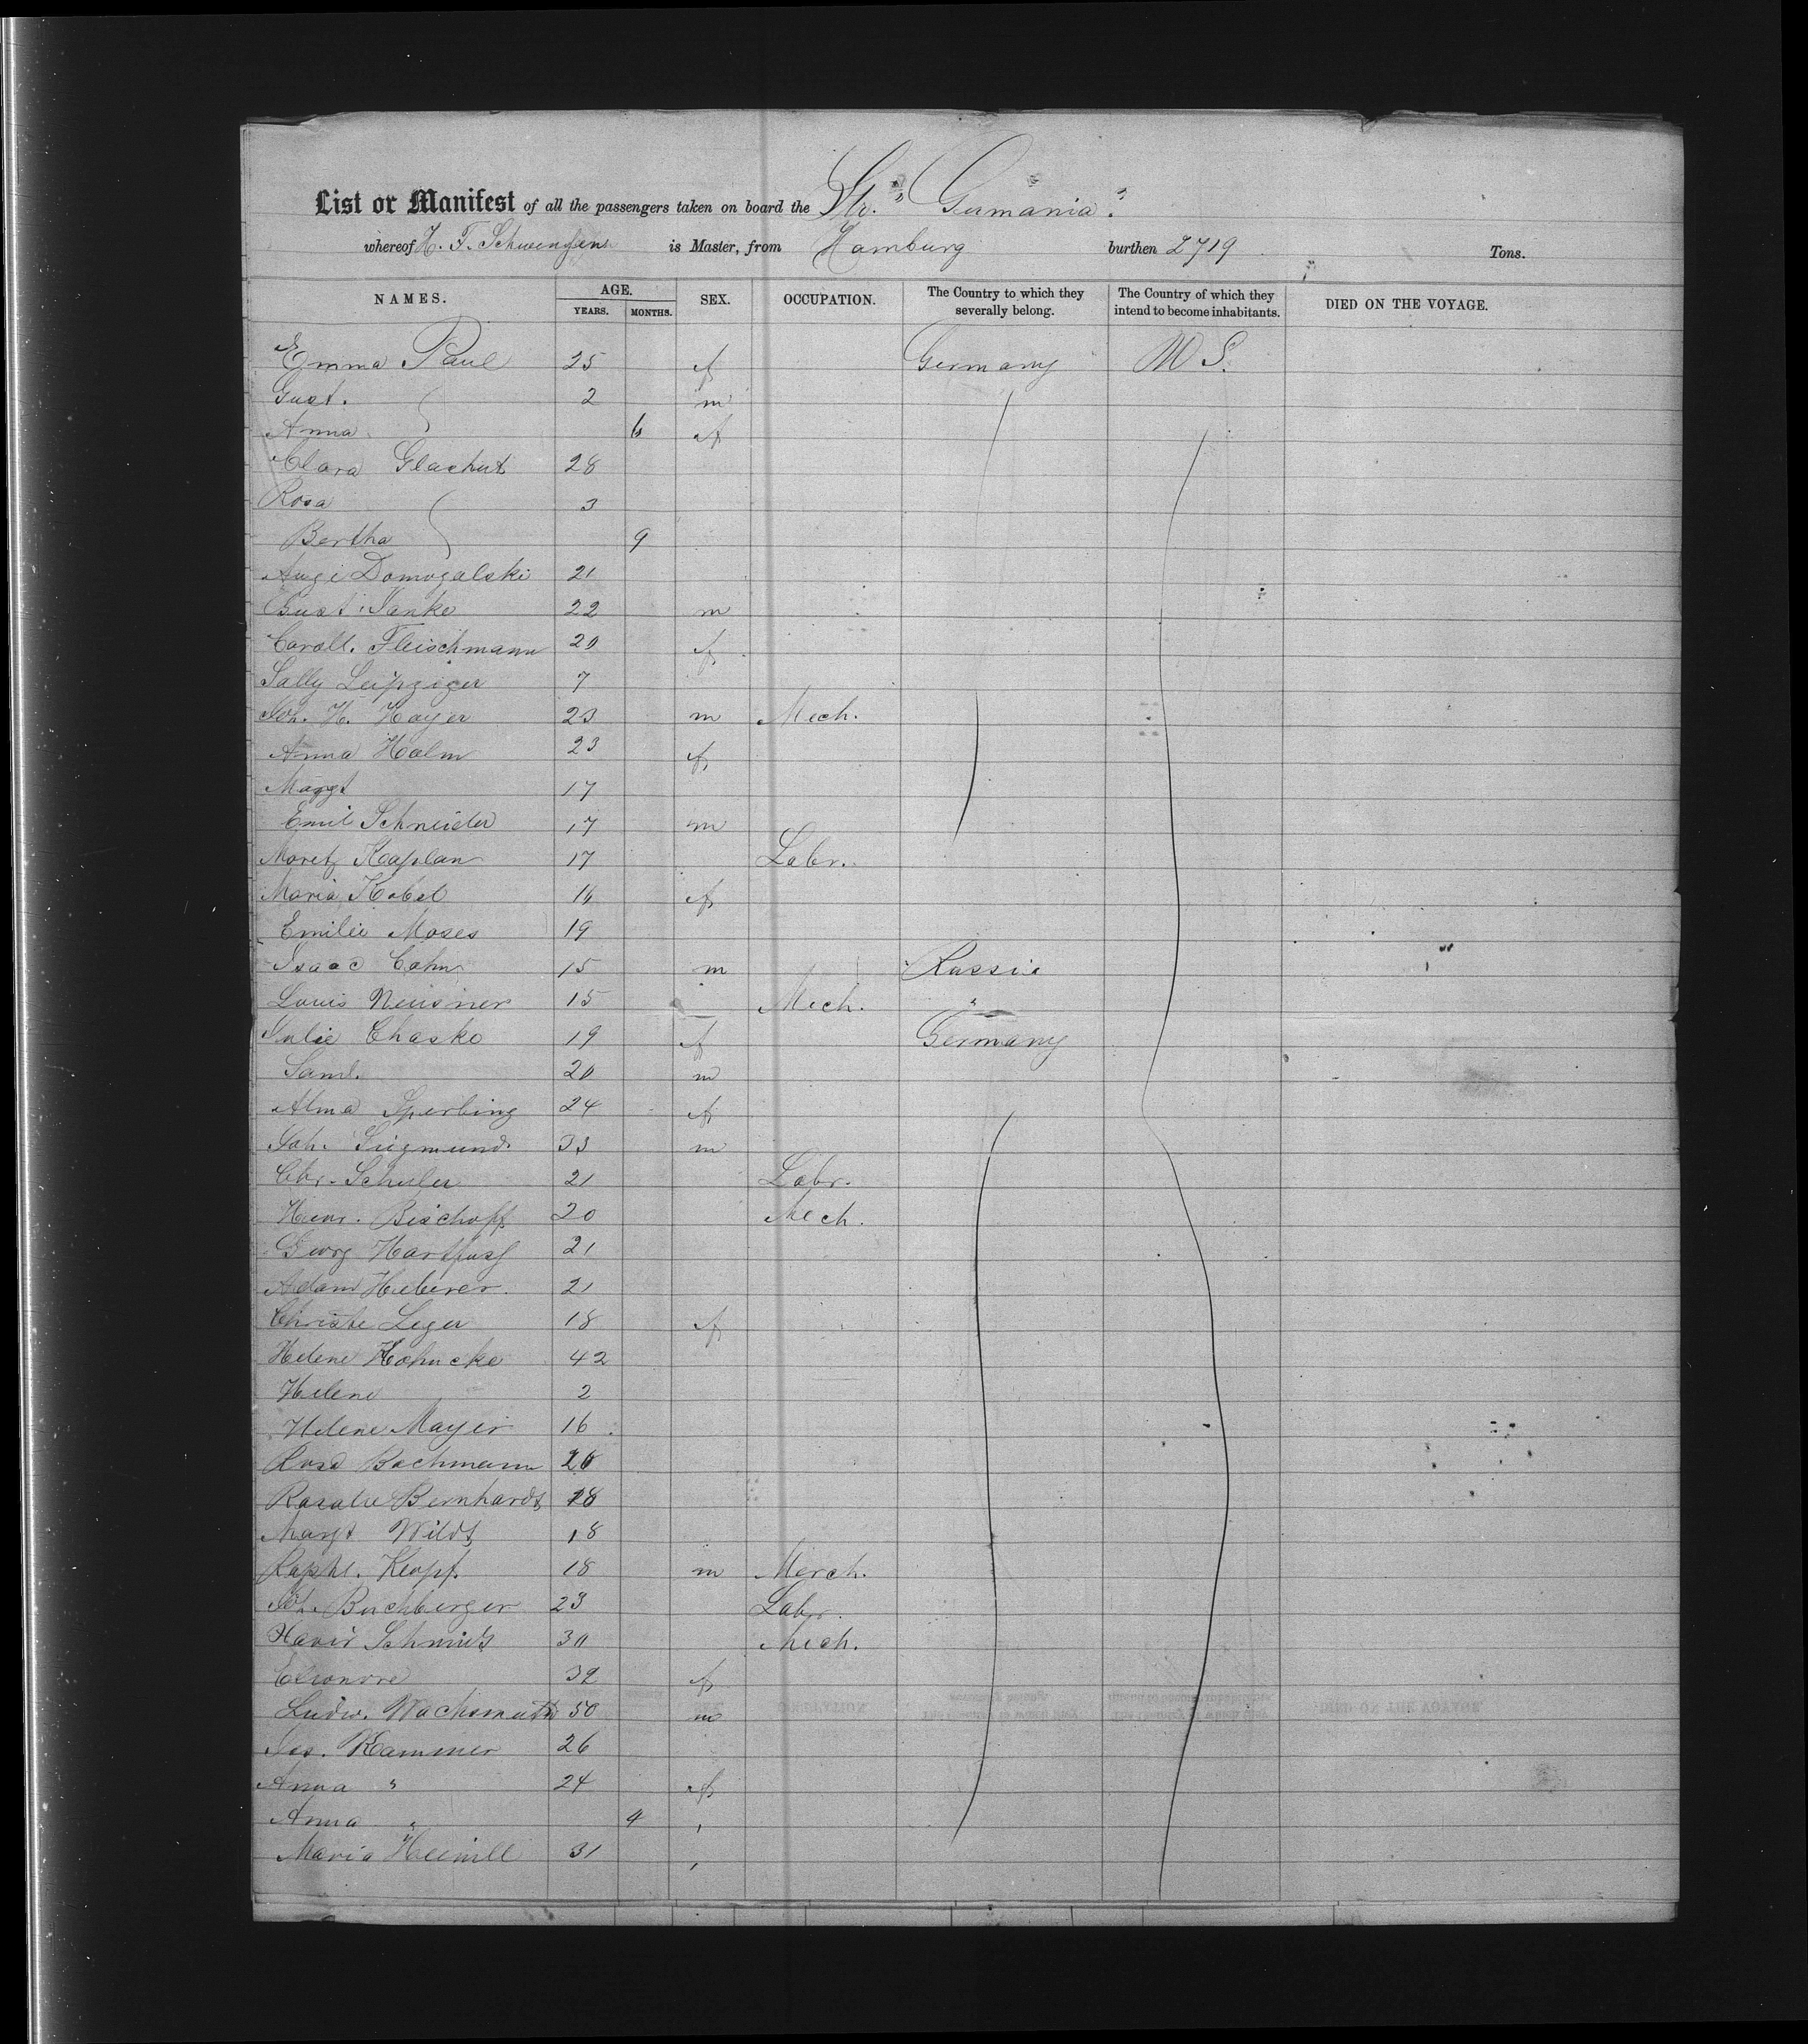 List or Manifest of all the passengers taken on board the Str. "Germania".
whereof H. F. Schwensen is Master, from Hamburg burthen 2719 Tons.
NAMES. AGE. YEARS. MONTHS. SEX. OCCUPATION. The Country to which they severally belong. The Country of which they intend to become inhabitants. DIED ON THE VOYAGE.
Emma Paul 25 f Germany U S.
Gust. 2 m
Anna 6 f
Clara Glachut 28
Rosa 3
Bertha 9
Domogalski 21
Gust. Janke 22 m
Caroll. Fleischmann 20 f
Sally Leipziger 7
Joh. H. Hayer 23 m Mech.
Anna Halm 23 f
Margt 17
Emil Schneider 17 m
Moretz Kaplan 17 Labr.
Maria Kobel 16 f
Emilie Moses 19
Isaac Cohn 15 m Russia
Louis Neusner 15 Mech. "
Julie Chasko 19 f Germany
Saml. 20 m
Alma Sperling 24 f
Joh. Siegmund 33 m
Chr. Schuler 21 Labr.
Heinr. Bischoff 20 Mech.
Georg Hartfusf 21
Adam Heberer 21
Christe Leger 18 f
Helene Kohncke 42
Helene 2
Helene Mayer 16
Rosa Bachmann 20
Rosalie Bernhardt 18
Margt Wildt 18
Raphl. Klopf 18 m Merch.
Joh. Buchberger 23 Labr.
Xavir Schmidt 30 Mech.
Eleonore 32 f
Ludw. Wachsmuth 50 m
Jos. Kammer 26
Anna " 24 f
Anna " 4 "
Maria 31 "